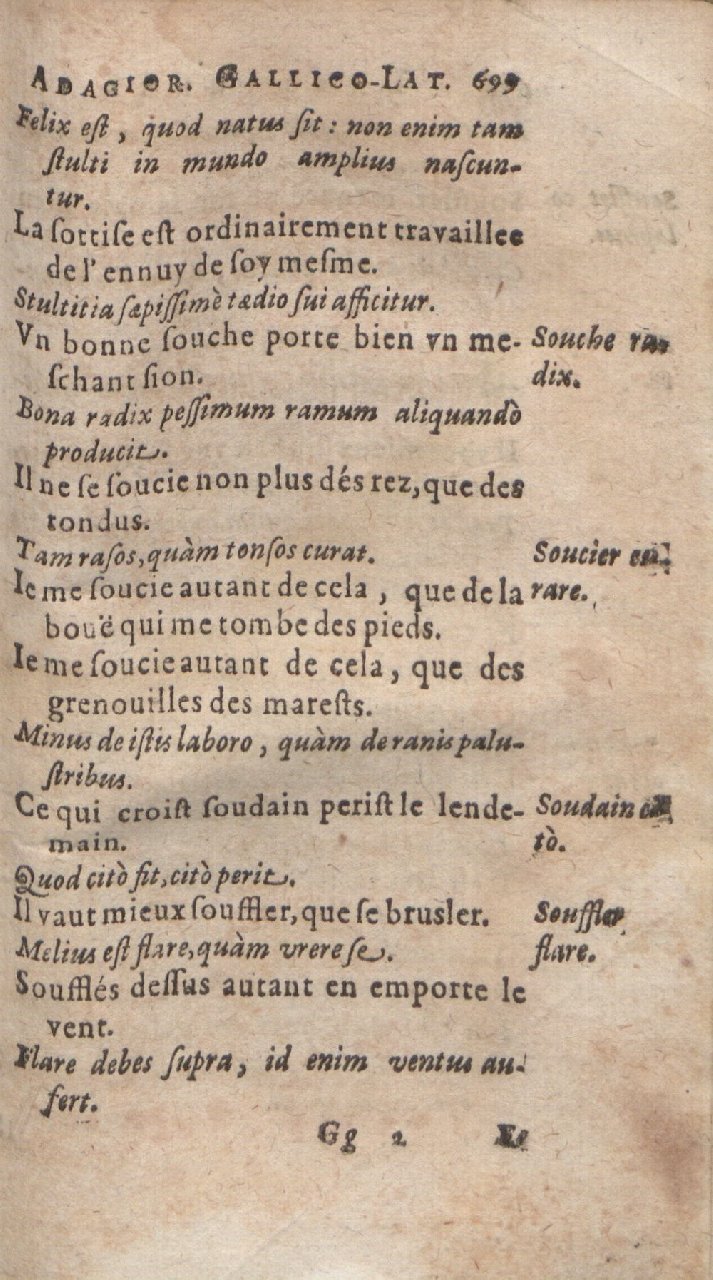 ADAGIOR. GALLICO-LAT. 699
Felix eſt, quod natus ſit: non enim tam
ſtulti in mundo amplius naſcun-
tur.
La ſottiſe eſt ordinairement travaillee
de l'ennuy de ſoy meſme.
Stultitia ſæpiſſimè tædio ſui afficitur.
Vn bonne ſouche porte bien vn me-
Souche ra-
ſchant ſion.
dix.
Bona radix peſſimum ramum aliquandò
producit.
Il ne ſe ſoucie non plus dés rez, que des
tondus.
Tam raſos, quàm tonſos curat.
Soucier cu-
Ie me ſoucie autant de cela, que de la
rare.
bouë qui me tombe des pieds.
Ie me ſoucie autant de cela, que des
grenouilles des mareſts.
Minus de iſtis laboro, quàm de ranis palu-
ſtribus.
Ce qui croiſt ſoudain periſt le lende-
Soudain
main.
tò.
Quod citò fit, citò perit.
Il vaut mieux ſouffler, que ſe brusler.
Souffler
Melius eſt flare, quàm vrere ſe.
flare.
Soufflés deſſus autant en emporte le
vent.
Flare debes ſupra, id enim ventus au-
fert.
Gg 2